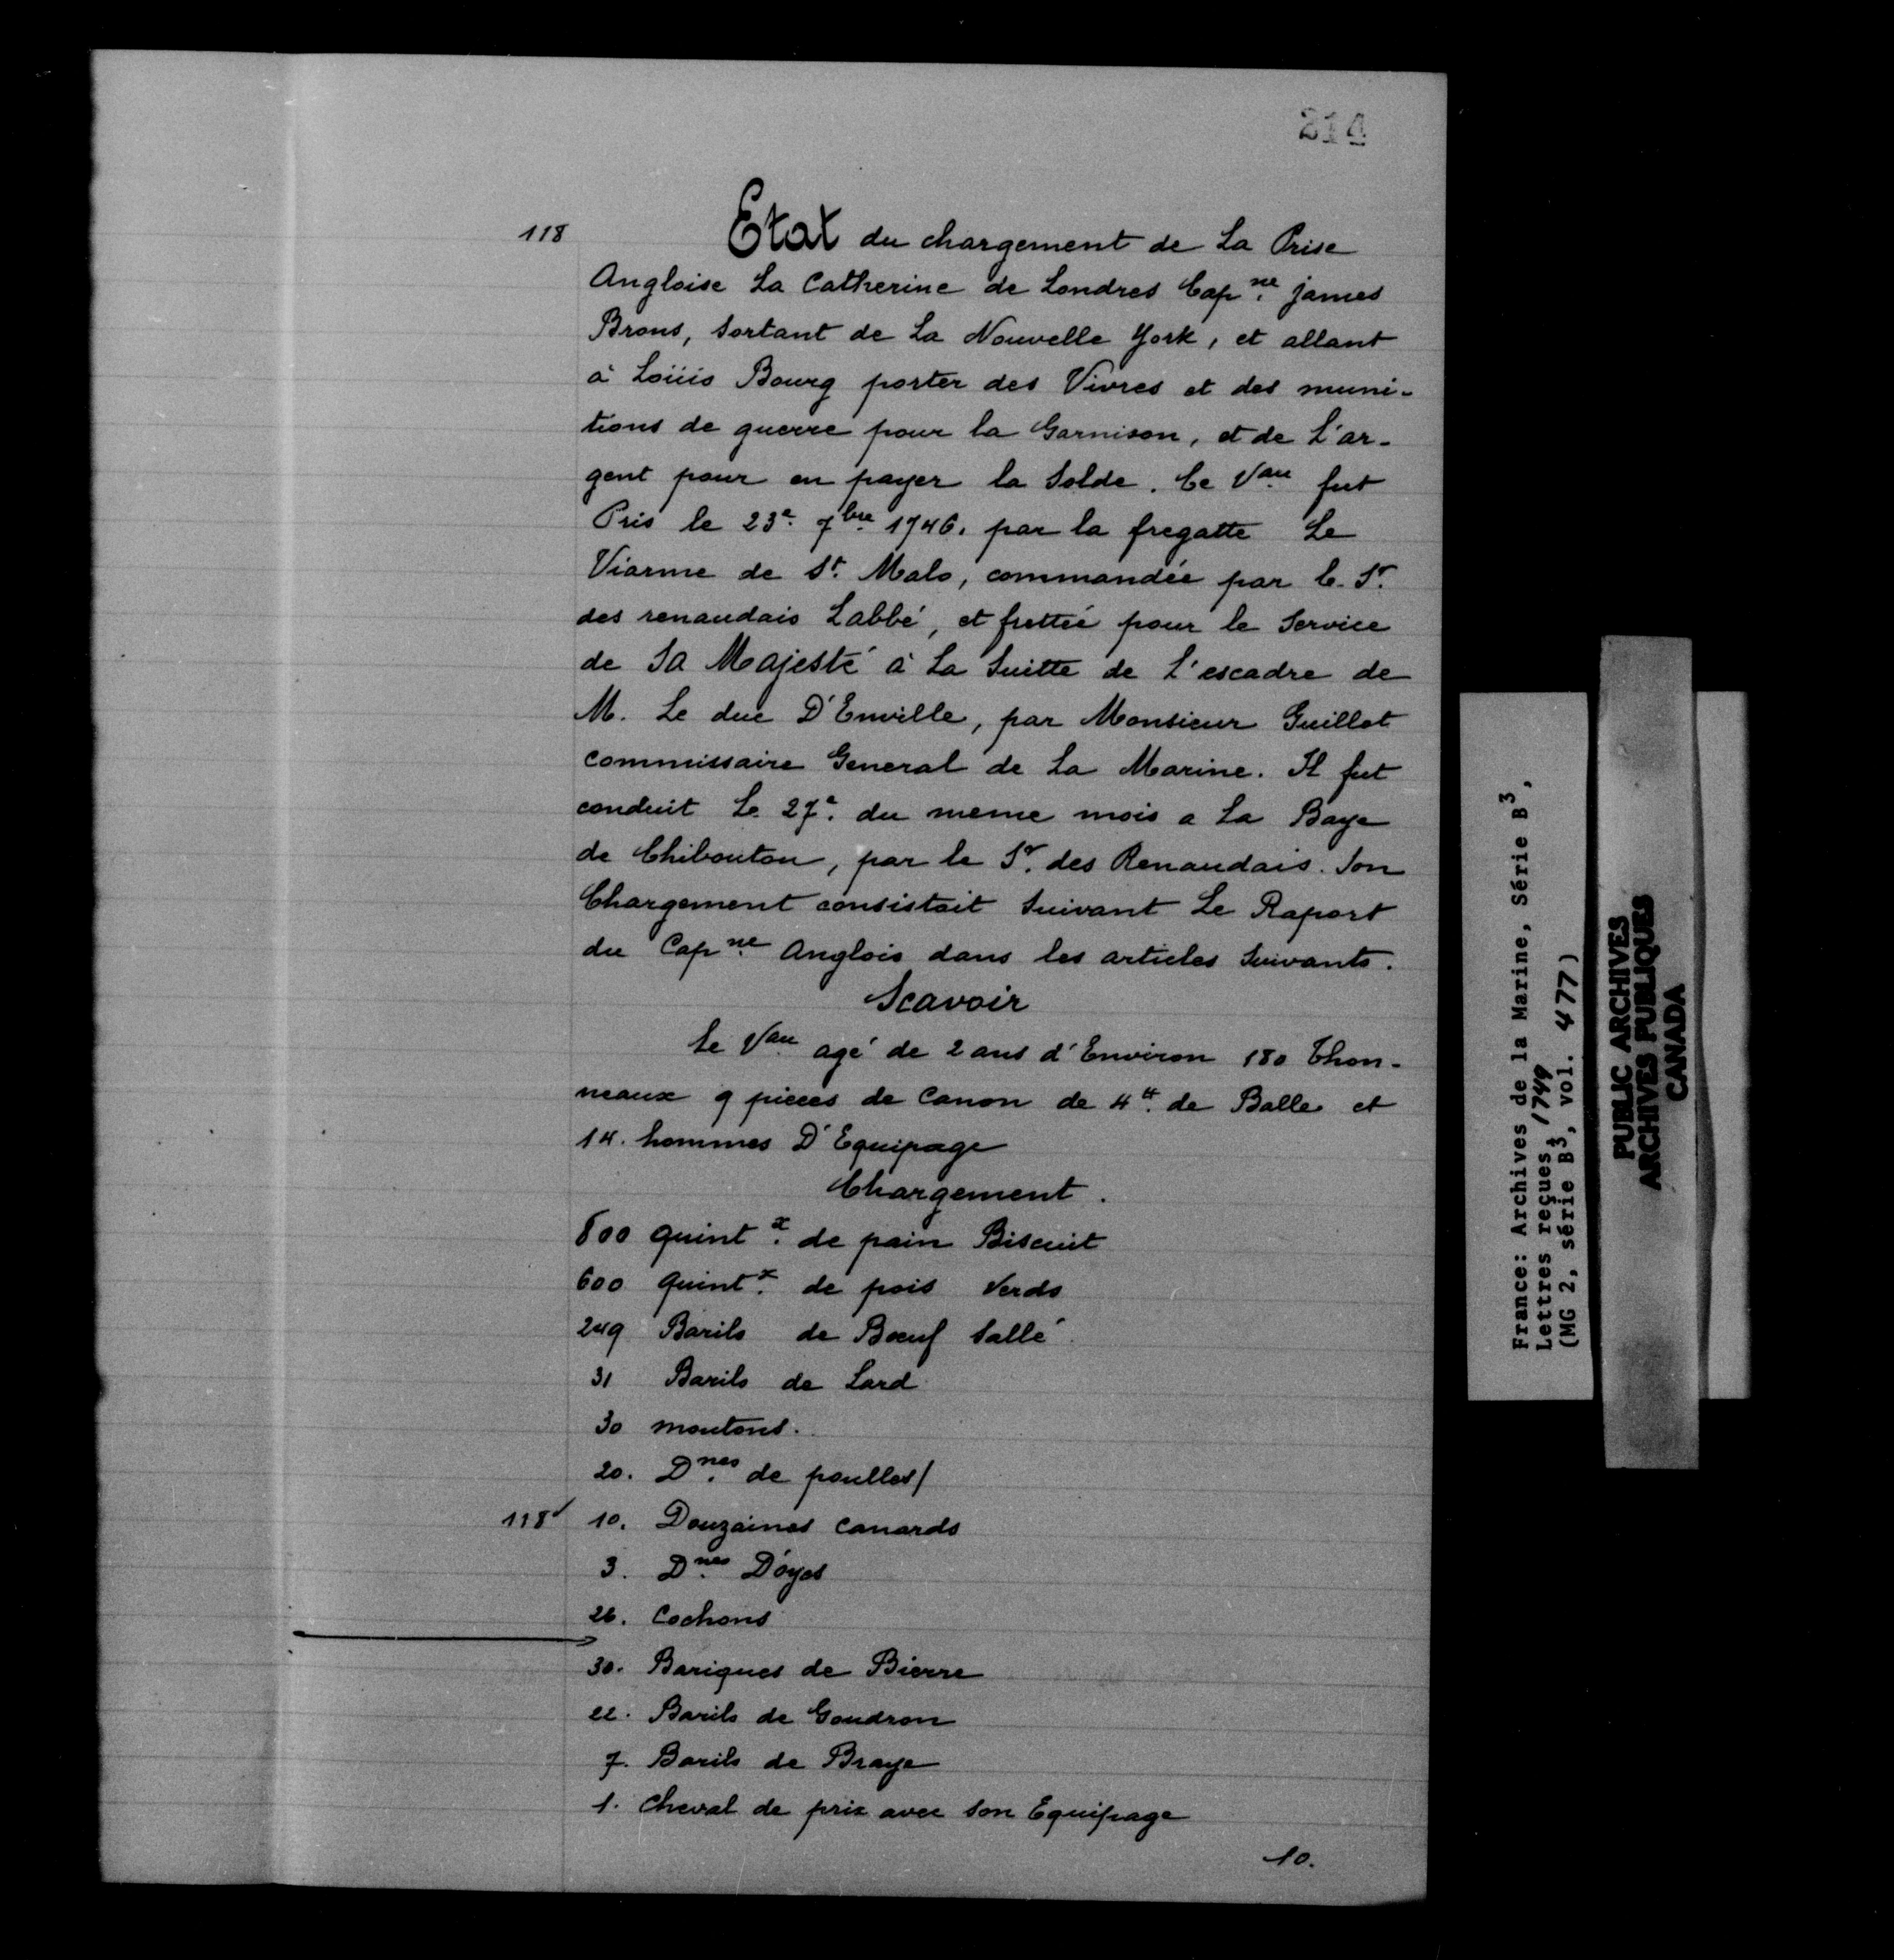 214
118
Etat du chargement de La Prise
Angloise La Catherine de Londres Cap.ne james
Brons, sortant de La Nouvelle York, et allant
à Loüis Bourg porter des Vivres et des muni-
tions de guerre pour la Garnison, et de L'ar-
gent pour en payer la Solde. Ce Vau fut
Pris le 23e. 7bre 1746, par la fregatte Le
Viarme de St. Malo, commandée par le Sr.
des renaudais Labbé, et frettée pour le Service
de Sa Majesté à La Suitte de L'escadre de
M. Le duc D'Enville, par Monsieur Guillot
Commissaire General de La Marine. Il fut
conduit Le 27e. du meme mois a La Baye
de Chibouton, par le Sr. des Renaudais. Son
Chargement consistoit Suivant Le Raport
du Cap.ne Anglois dans les articles Suivants.
Scavoir
Le Vau agé de 2 ans d'Environ 180 Thon-
neaux 9 pieces de Canon de 4#. de Balle et
14. hommes D'Equipage
Chargement.
800 quint.x de pain Biscuit
600 quint.x de pois Verds
249 Barils de Bœuf Sallé
31 Barils de Lard
30 moutons.
20. D.nes de poulles/
118v 10. Douzaines Canards
3. D.nes D'oyes
26. Cochons
30. Bariques de Bierre
22. Barils de Goudron
7. Barils de Braye
1. Cheval de prix avec Son Equipage
10.
France: Archives de la Marine, Série B3,
Lettres reçues, 1749
(MG 2, série B3, vol. 477)
PUBLIC ARCHIVES
ARCHIVES PUBLIQUES
CANADA